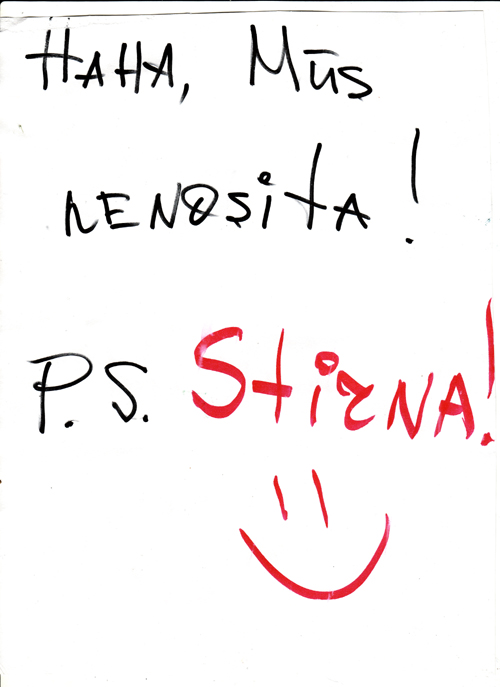 HAHA, MŪS
NENOSITA!
P.S. StiRNA!